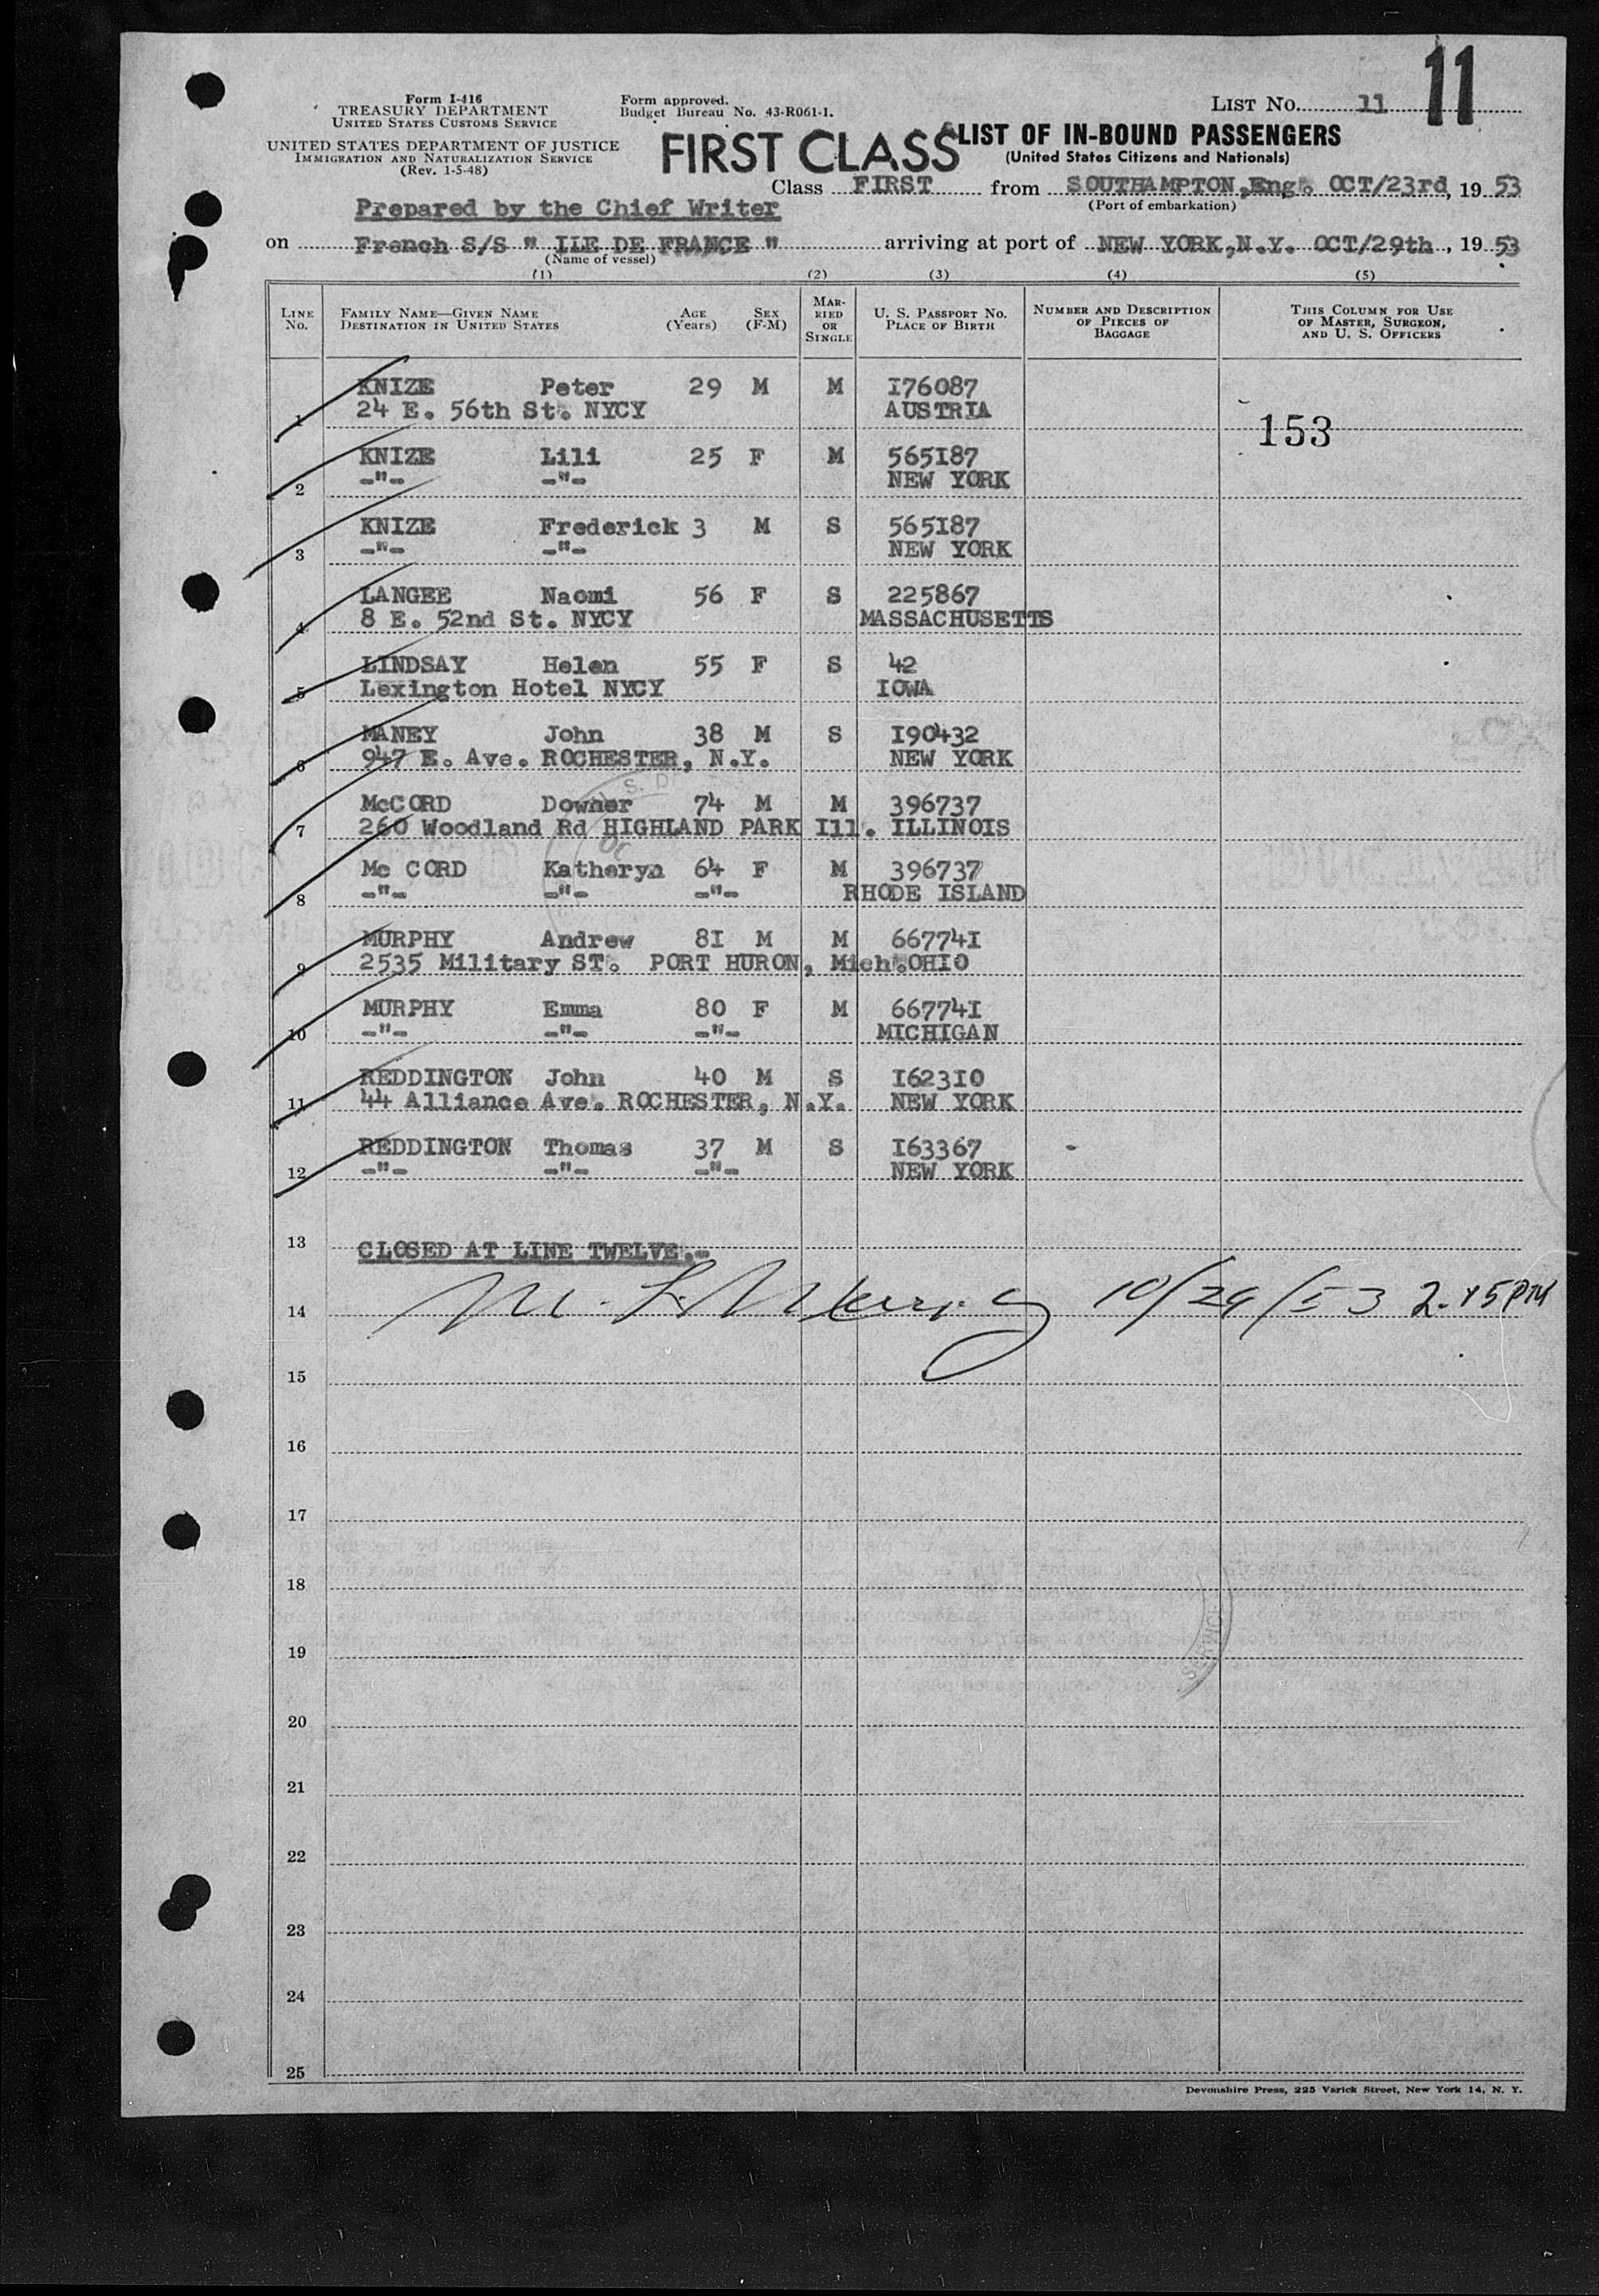 11
Form I-416
TREASURY DEPARTMENT
UNITED STATES CUSTOMS SERVICE
UNITED STATES DEPARTMENT OF JUSTICE
IMMIGRATION AND NATURALIZATION SERVICE
(Rev. 1-5-48)
Form approved.
Budget Bureau No. 43-R061-1.
LIST No. 11
FIRST CLASS LIST OF IN-BOUND PASSENGERS
(United States Citizens and Nationals)
Class FIRST from SOUTHAMPTON,Eng. OCT/23rd, 19 53
(Port of embarkation)
Prepared by the Chief Writer
on French S/S " ILE DE FRANCE " arriving at port of NEW YORK,N.Y. OCT/29th, 19 53
(Name of vessel)
(1) (2) (3) (4) (5)
LINE No. FAMILY NAME—GIVEN NAME DESTINATION IN UNITED STATES AGE (Years) SEX (F-M) MARRIED OR SINGLE U. S. PASSPORT No. PLACE OF BIRTH NUMBER AND DESCRIPTION OF PIECES OF BAGGAGE THIS COLUMN FOR USE OF MASTER, SURGEON, AND U. S. OFFICERS
KNIZE Peter 29 M M I76087
1 24 E. 56th St. NYCY AUSTRIA
153
KNIZE Lili 25 F M 565I87
2 -"- -"- NEW YORK
KNIZE Frederick 3 M S 565I87
3 -"- -"- NEW YORK
LANGEE Naomi 56 F S 225867
4 8 E. 52nd St. NYCY MASSACHUSETTS
LINDSAY Helen 55 F S 42
5 Lexington Hotel NYCY IOWA
MANEY John 38 M S I90432
6 947 E. Ave. ROCHESTER, N.Y. NEW YORK
McCORD Downer 74 M M 396737
7 260 Woodland Rd HIGHLAND PARK Ill. ILLINOIS
Mc CORD Katheryn 64 F M 396737
8 -"- -"- -"- RHODE ISLAND
MURPHY Andrew 8I M M 66774I
9 2535 Military ST. PORT HURON, Mich.OHIO
MURPHY Emma 80 F M 66774I
10 -"- -"- -"- MICHIGAN
REDDINGTON John 40 M S I62310
11 44 Alliance Ave. ROCHESTER, N.Y. NEW YORK
REDDINGTON Thomas 37 M S I63367
12 -"- -"- -"- NEW YORK
13 CLOSED AT LINE TWELVE.-
14 10/29/53
15
16
17
18
19
SERVICE
20
21
22
23
24
25
Devonshire Press, 225 Varick Street, New York 14, N. Y.